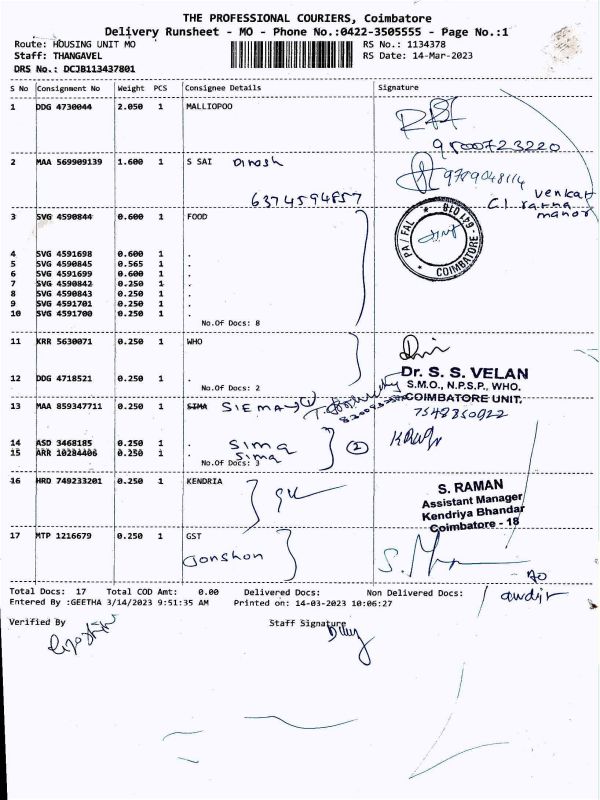 THE PROFESSIONAL COURIERS, Coimbatore
Delivery Runsheet - MO - Phone No.:0422-3505555 - Page No.:1
Route: HOUSING UNIT MO
RS No.: 1134378
Staff: THANGAVEL
RS Date: 14-Mar-2023
DRS No.: DCJB113437801
S No Consignment No Weight PCS Consignee Details Signature
1 DDG 4730044 2.050 1 MALLIOPOO
9500723220
2 MAA 569909139 1.600 1 S SAI Dinesh
9789048114
6374594857
venkat
manor
3 SVG 4590844 0.600 1 FOOD
PA/FAL
641 018
COIMBATORE
4 SVG 4591698 0.600 1 .
5 SVG 4590845 0.565 1 .
6 SVG 4591699 0.600 1 .
7 SVG 4590842 0.250 1 .
8 SVG 4590843 0.250 1 .
9 SVG 4591701 0.250 1 .
10 SVG 4591700 0.250 1 .
No.Of Docs: 8
11 KRR 5630071 0.250 1 WHO
Dr. S. S. VELAN
S.M.O., N.P.S.P., WHO.
COIMBATORE UNIT.
12 DDG 4718521 0.250 1 .
No.Of Docs: 2
13 MAA 859347711 0.250 1 SIMA
14 ASD 3468185 0.250 1 . Sima
15 ARR 10284406 0.250 1 . Sima
No.Of Docs: 3
2
16 HRD 749233201 0.250 1 KENDRIA
S. RAMAN
Assistant Manager
Kendriya Bhandar
Coimbatore - 18
17 MTP 1216679 0.250 1 GST
Total Docs: 17 Total COD Amt: 0.00 Delivered Docs: Non Delivered Docs:
Entered By :GEETHA 3/14/2023 9:51:35 AM Printed on: 14-03-2023 10:06:27
Verified By Staff Signature